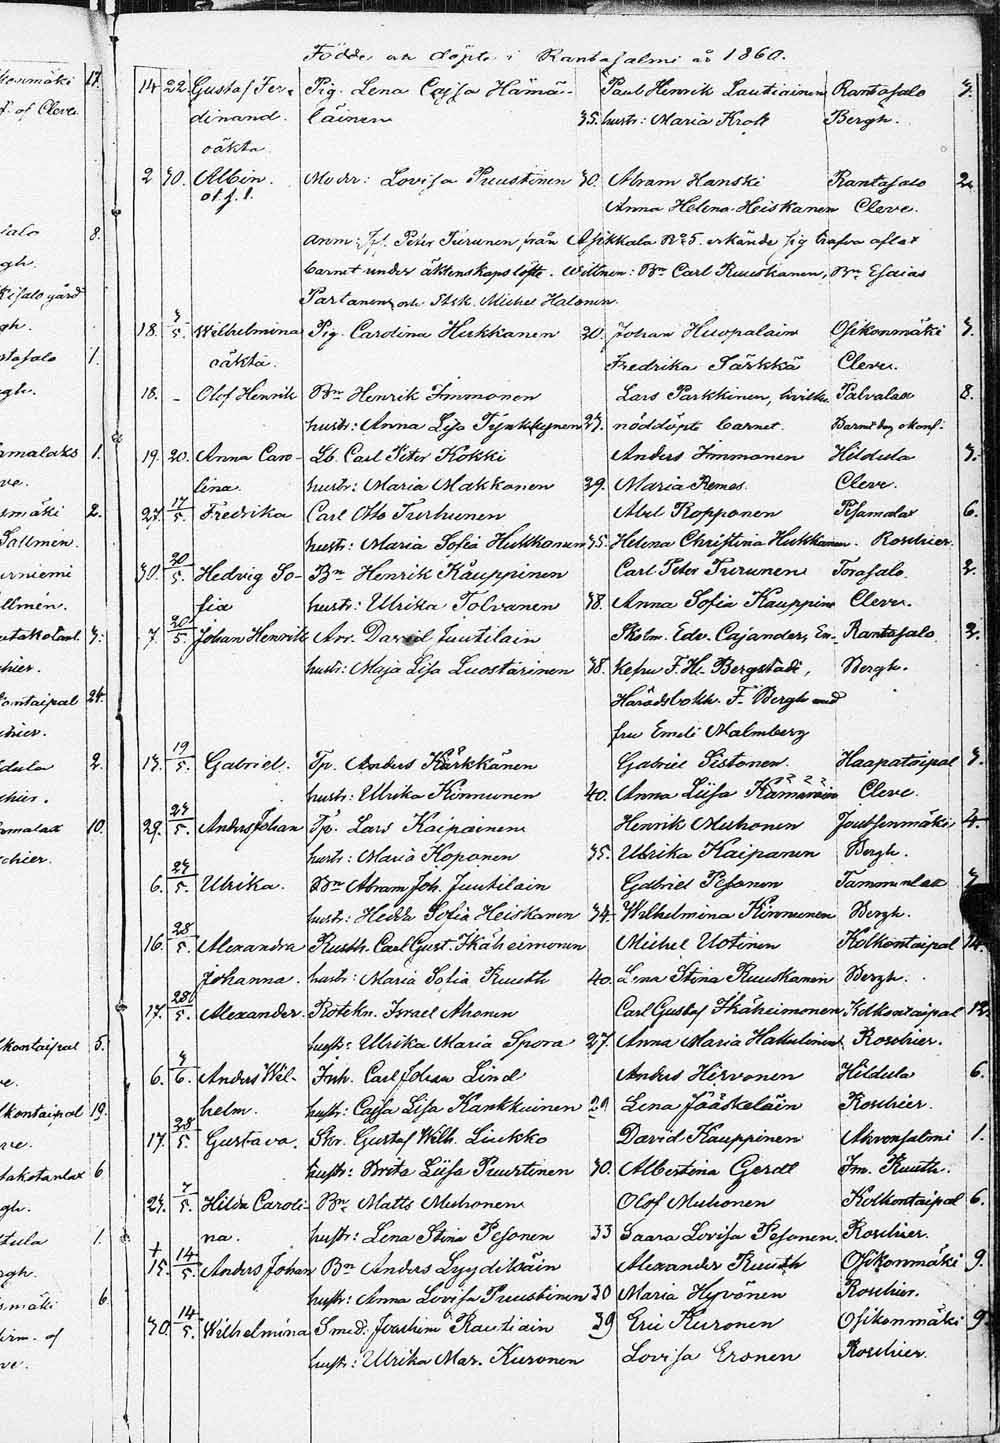 Födde och döpte i Rantasalmi år 1860.
14 22 Gustaf Fer- Pig. Lena Cajsa Hämä- Paul Henrik Lautiainen Rantasalo 3.
dinand. läinen 35. hustr: Maria Kroll Bergh.
oäkta
2 30. Albin. Moder: Lovisa Puustinen 30. Abram Hanski Rantasalo 2.
Anna Helena Heiskanen Cleve.
Anm: Peter Turunen, från Asikkala No 5. erkände sig hafva aflat
barnet under äktenskapslöfte. Wittnen: Bn. Carl Ruuskanen, Bn. Esaias
Partanen och Michel Halonen.
18. 3/5. Wilhelmina Pig. Carolina Hukkanen 20. Johan Huopalain Osikonmäki 3.
oäkta. Fredrika Särkkä Cleve.
18. - Olof Henrik Bn Henrik Immonen Lars Parkkinen, hvilken Palvalax 8.
hustr: Anna Lisa Tynkkynen 27. nöddöpte barnet.
19. 20. Anna Caro- Lb. Carl Peter Kokki Anders Immonen Hiltula 3.
lina. hustr: Maria Makkonen 39. Maria Remes. Cleve.
27. 17/5. Fredrika Carl Otto Turhunen Abel Ropponen 6.
hustr: Maria Sofia Hukkanen 35. Helena Christina Hukkanen. Roschier.
30. 20/5. Hedvig So- Bn Henrik Kauppinen Carl Peter Turunen Torasalo. 2.
fia hustr: Ulrika Tolvanen 38. Anna Sofia Kauppin Cleve.
7. 20/5. Johan Henrik Arr. David Juutilain Skolm. Edv. Cajander, En- Rantasalo 2.
hustr: Maja Lisa Luostarinen 38. kefru F. H. Bergstadi, Bergh.
Häradsbokh. F. Bergh and
fru Emeli Malmberg
13. 19/5. Gabriel. Tp. Anders Kärkkänen Gabriel Sistonen Haapataipal 3.
hustr: Ulrika Kinnunen 40. Anna Luisa Cleve.
29. 27/5. Anders Johan Tp. Lars Kaipainen Henrik Muhonen Joutsenmäki 4.
hustr: Maria Koponen 35. Ulrika Kaipanen Bergh.
6. 27/5. Ulrika. Bn Abram Joh. Juutilain Gabriel Pesonen 3.
hustr: Hedda Sofia Heiskanen 34. Wilhelmina Kinnunen Bergh.
16. 28/5. Alexandra Rusth. Carl Gust. Ikäheimonen Michel Uotinen Kolkontaipal 14.
Johanna. hustr: Maria Sofia Kuuth 40. Lena Stina Ruuskanen Bergh.
17. 28/5. Alexander. Rotekn. Israel Ahonen Carl Gustaf Ikäheimonen Kolkontaipal 12.
hustr: Ulrika Maria Spora 27. Anna Maria Hakulinen Roschier.
6. 3/6. Anders Wil- Inh. Carl Johan Lind Anders Hirvonen Hiltula 6.
helm. hustr: Cajsa Lisa Kankkuinen 29 Lena Jääskeläin Roschier.
17. 28/5. Gustava. Skr. Gustaf Wilh. Liukko David Kauppinen Ahvensalmi 1.
hustr: Brita Luisa Puurtinen 30. Albertina Gerdt Im. Kuuth.
23. 7/5. Hilda Caroli- Bn Matts Muhonen Olof Muhonen Kolkontaipal 6.
na. hustr: Lena Stina Pesonen 33 Saara Lovisa Pesonen. Roschier.
+ 15. 14/5. Anders Johan Bn Anders Lyydikäin Alexander Kuuth Osikonmäki 9.
hustr: Anna Lovisa Puustinen 30 Maria Hyvönen Roschier.
30. 14/5. Wilhelmina Smed: Joachim Rautiain 39 Eric Kuronen Osikonmäki 9.
hustr: Ulrika Mar. Kuronen Lovisa Eronen Roschier.